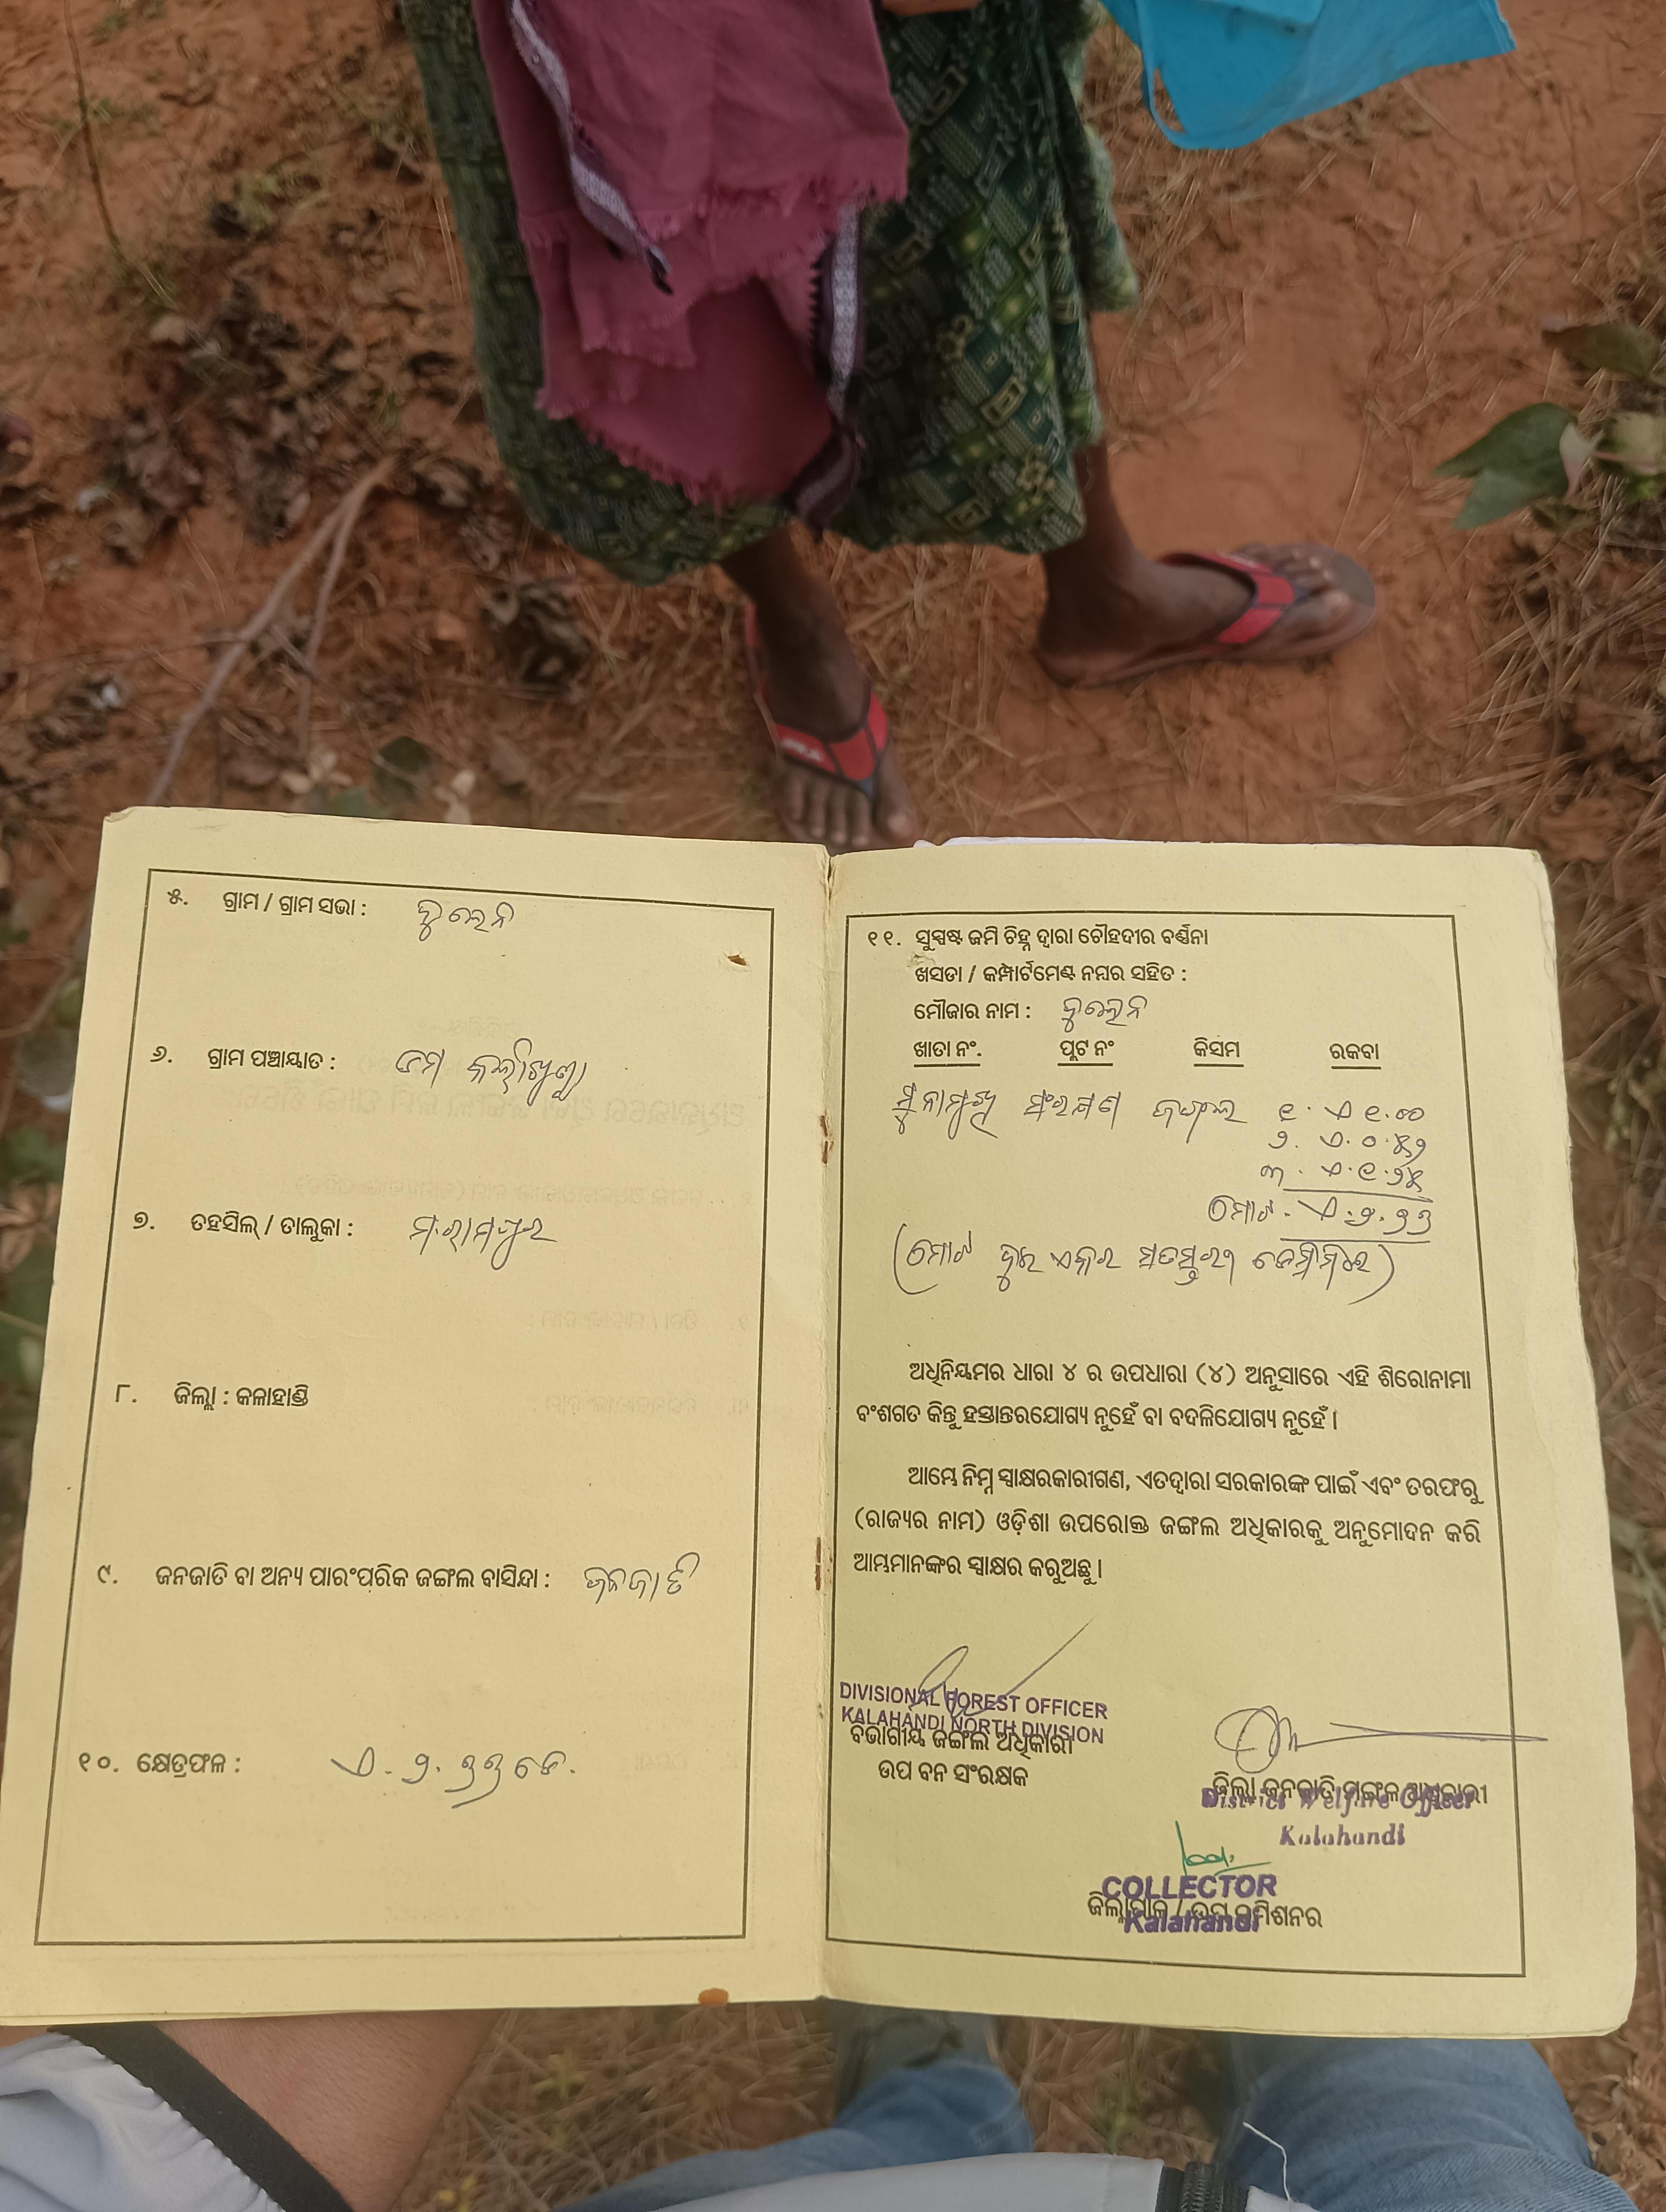 ୫. ଗ୍ରାମ / ଗ୍ରାମ ସଭା :
୬. ଗ୍ରାମ ପଞ୍ଚାୟାତ :
୭. ତହସିଲ୍ / ତାଲୁକା : ମ.ରାମପୁର
୮. ଜିଲ୍ଲା : କଳାହାଣ୍ଡି
୯. ଜନଜାତି ବା ଅନ୍ୟ ପାରଂପରିକ ଜଙ୍ଗଲ ବାସିନ୍ଦା : ଜନଜାତି
୧୦. କ୍ଷେତ୍ରଫଳ :
୧୧. ସୁସ୍ପଷ୍ଟ ଜମି ଚିହ୍ନ ଦ୍ୱାରା ଚୌହଦୀର ବର୍ଣ୍ଣନା
ଖସଡା / କମ୍ପାର୍ଟମେଣ୍ଟ ନମ୍ବର ସହିତ :
ମୌଜାର ନାମ :
ଖାତା ନଂ. ପ୍ଲଟ ନଂ କିସମ ରକବା
ସଂରକ୍ଷଣ ଜଙ୍ଗଲ
ମୋଟ
(ମୋଟ ଦୁଇ ଏକର
ଅଧିନିୟମର ଧାରା ୪ ର ଉପଧାରା (୪) ଅନୁସାରେ ଏହି ଶିରୋନାମା
ବଂଶଗତ କିନ୍ତୁ ହସ୍ତାନ୍ତରଯୋଗ୍ୟ ନୁହେଁ ବା ବଦଳିଯୋଗ୍ୟ ନୁହେଁ ।
ଆମ୍ଭେ ନିମ୍ନ ସ୍ୱାକ୍ଷରକାରୀଗଣ, ଏତଦ୍ୱାରା ସରକାରଙ୍କ ପାଇଁ ଏବଂ ତରଫରୁ
(ରାଜ୍ୟର ନାମ) ଓଡ଼ିଶା ଉପରୋକ୍ତ ଜଙ୍ଗଲ ଅଧିକାରକୁ ଅନୁମୋଦନ କରି
ଆମ୍ଭମାନଙ୍କର ସ୍ୱାକ୍ଷର କରୁଅଛୁ ।
DIVISIONAL FOREST OFFICER
KALAHANDI NORTH DIVISION
ବିଭାଗୀୟ ଜଙ୍ଗଲ ଅଧିକାରୀ
ଉପ ବନ ସଂରକ୍ଷକ
ଜିଲ୍ଲା ଜନଜାତି ମଙ୍ଗଳ ଅଧିକାରୀ
District Welfare Officer
Kalahandi
COLLECTOR
ଜିଲ୍ଲାପାଳ / ଉପ କମିଶନର
Kalahandi